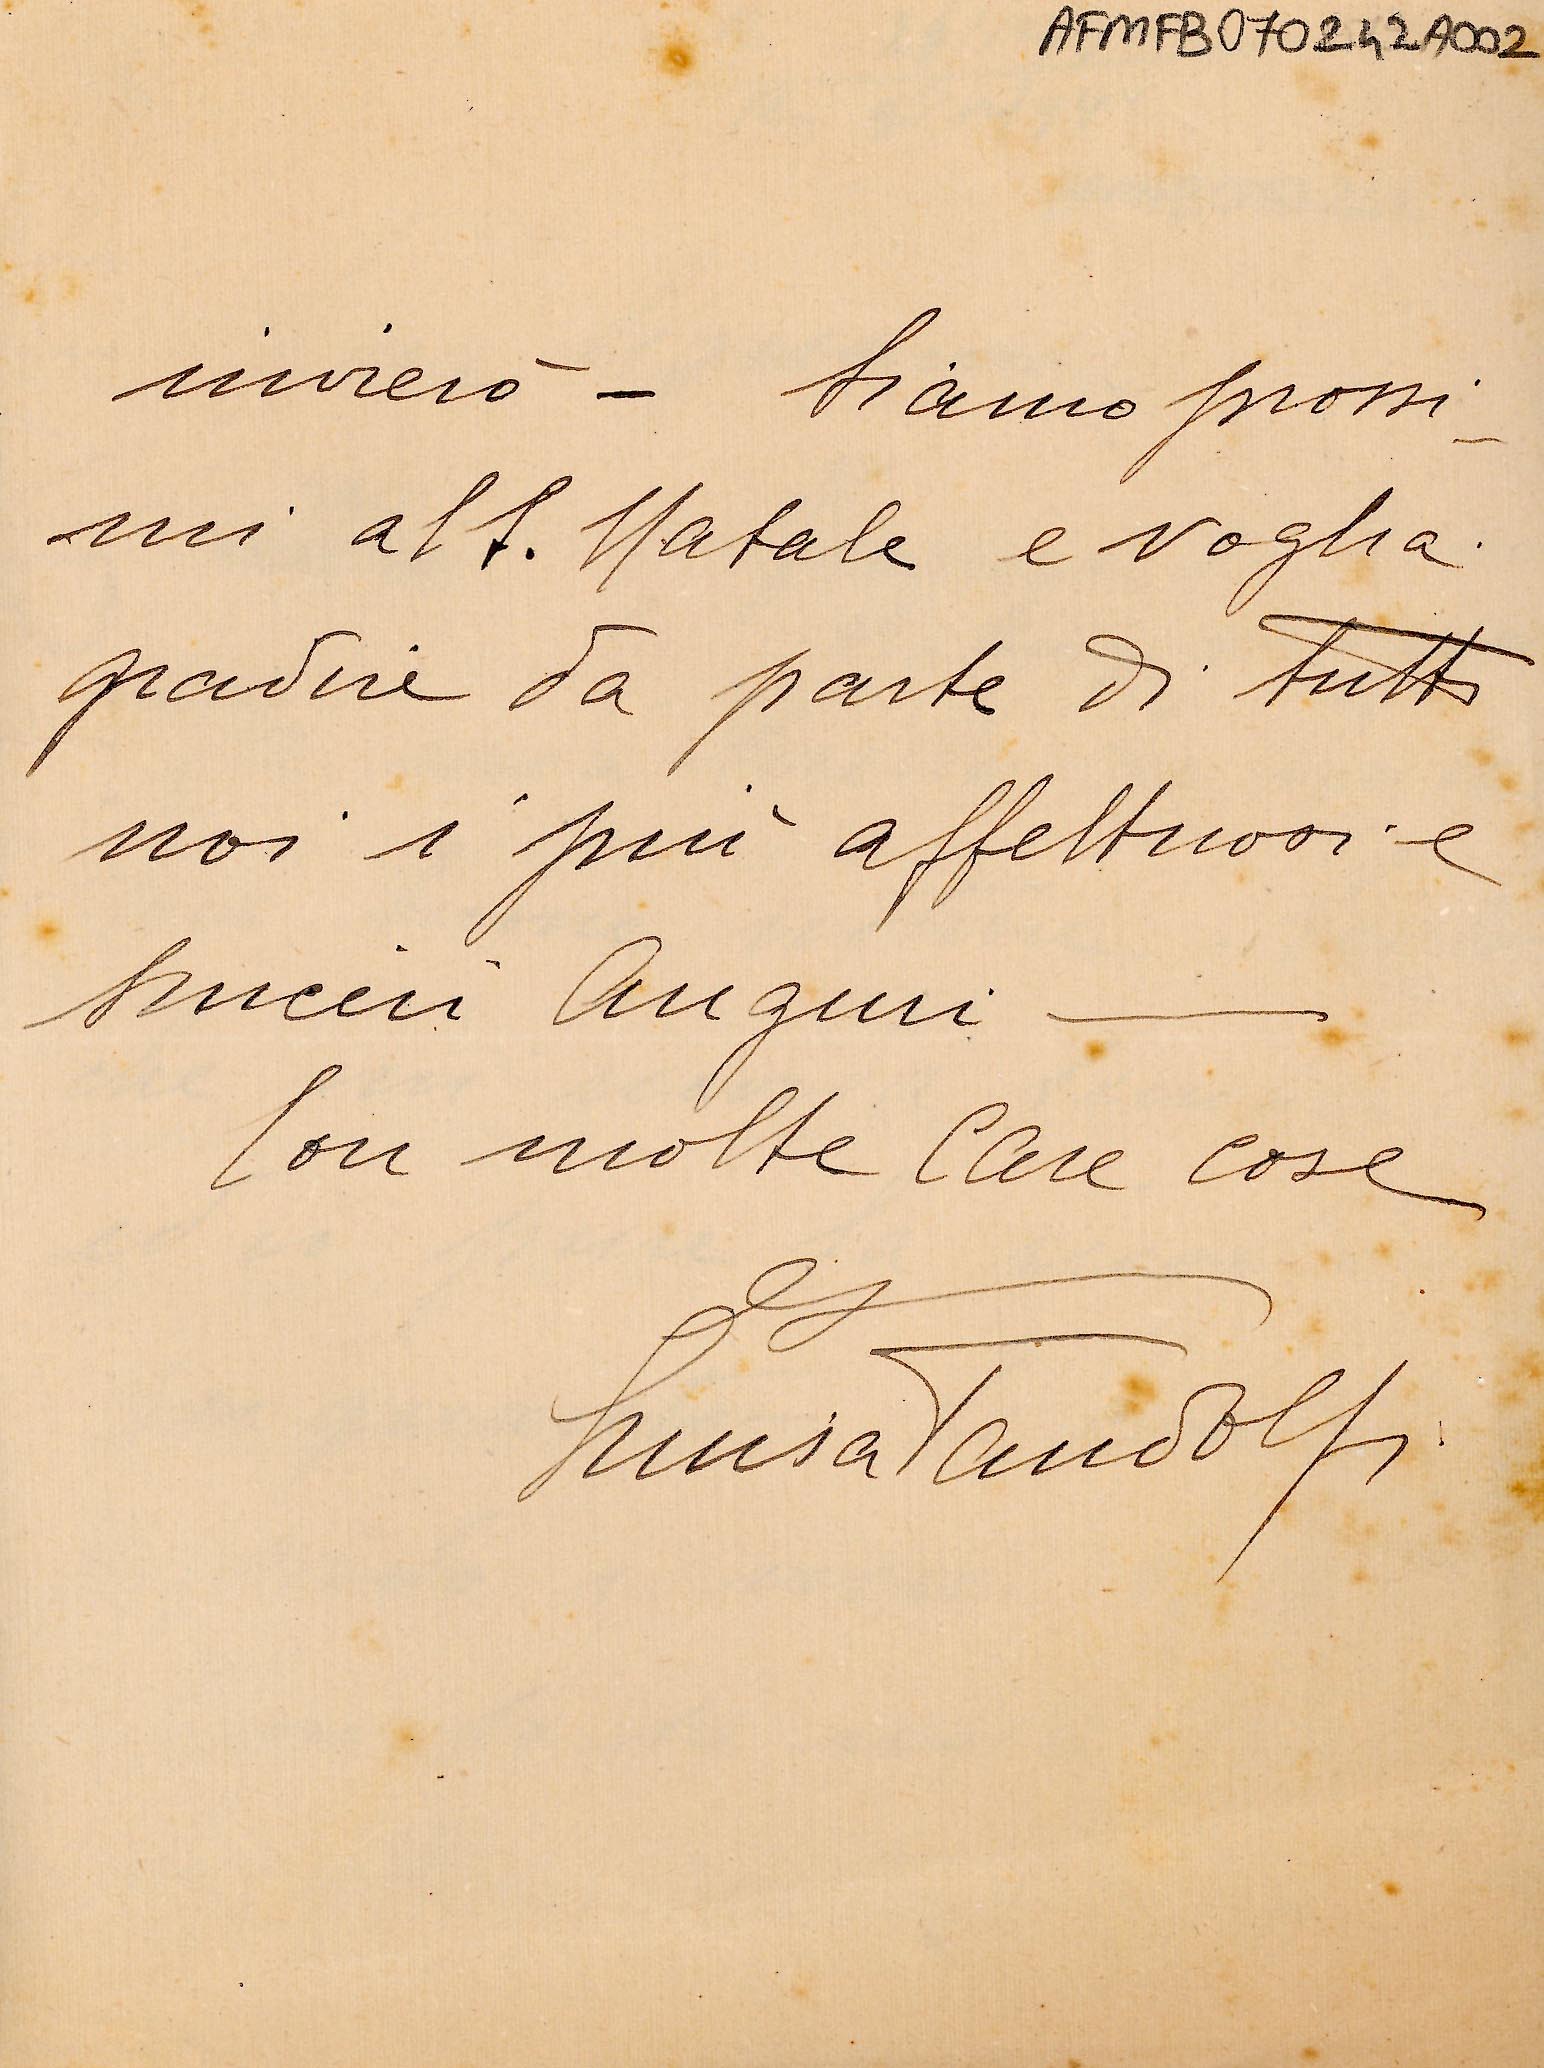 AFMFB070242A002
invierò - Siamo prossi_
mi al S. Natale e voglia
gradire da parte di tutti
noi i più affettuosi e
sinceri Auguri —
Con molte Care cose
Luisa Pandolfi